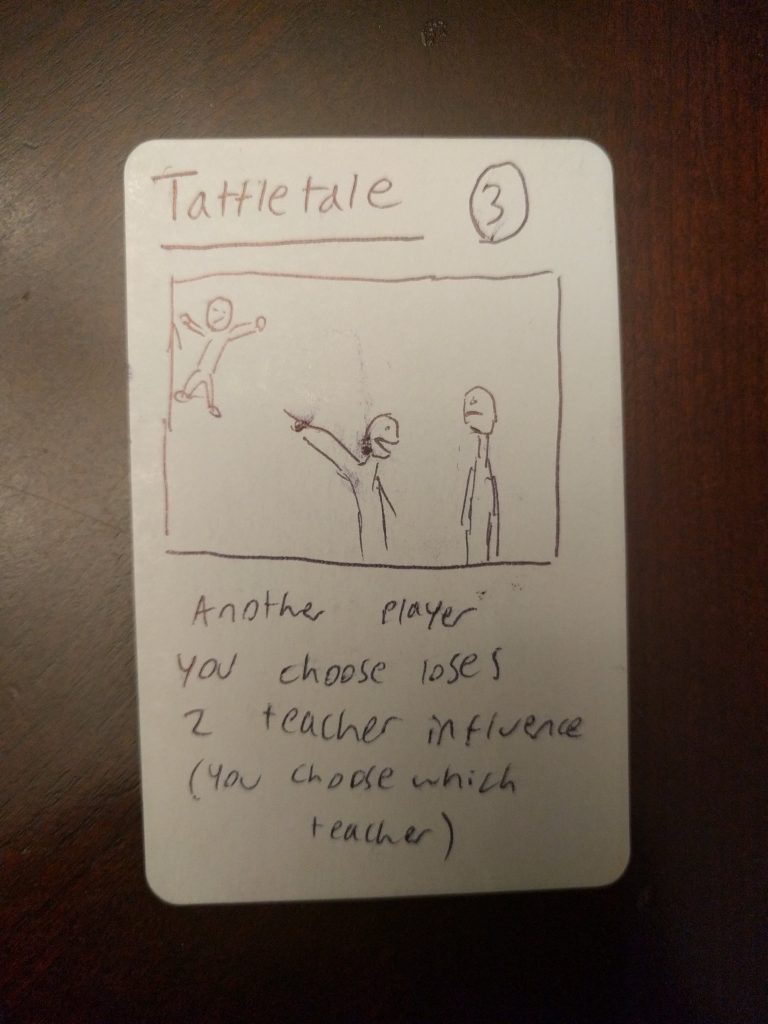 Tattletale 3
Another player
you choose loses
2 teacher influence
(you choose which
teacher)